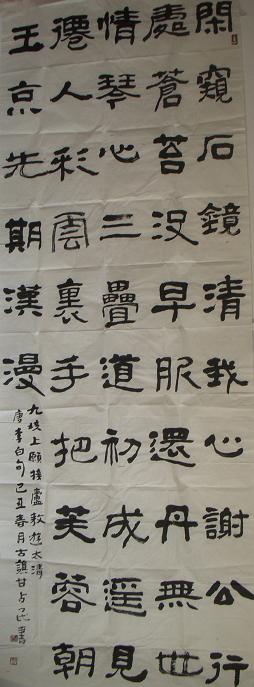 閑窺石鏡清我心謝公行
處蒼苔沒早服還丹無世
情琴心三疊道初成遥見
僊人彩雲裏手把芙蓉朝
王京先期漢漫
九垓上願接盧敖遊太清
唐李白句己丑春月古鎮甘書